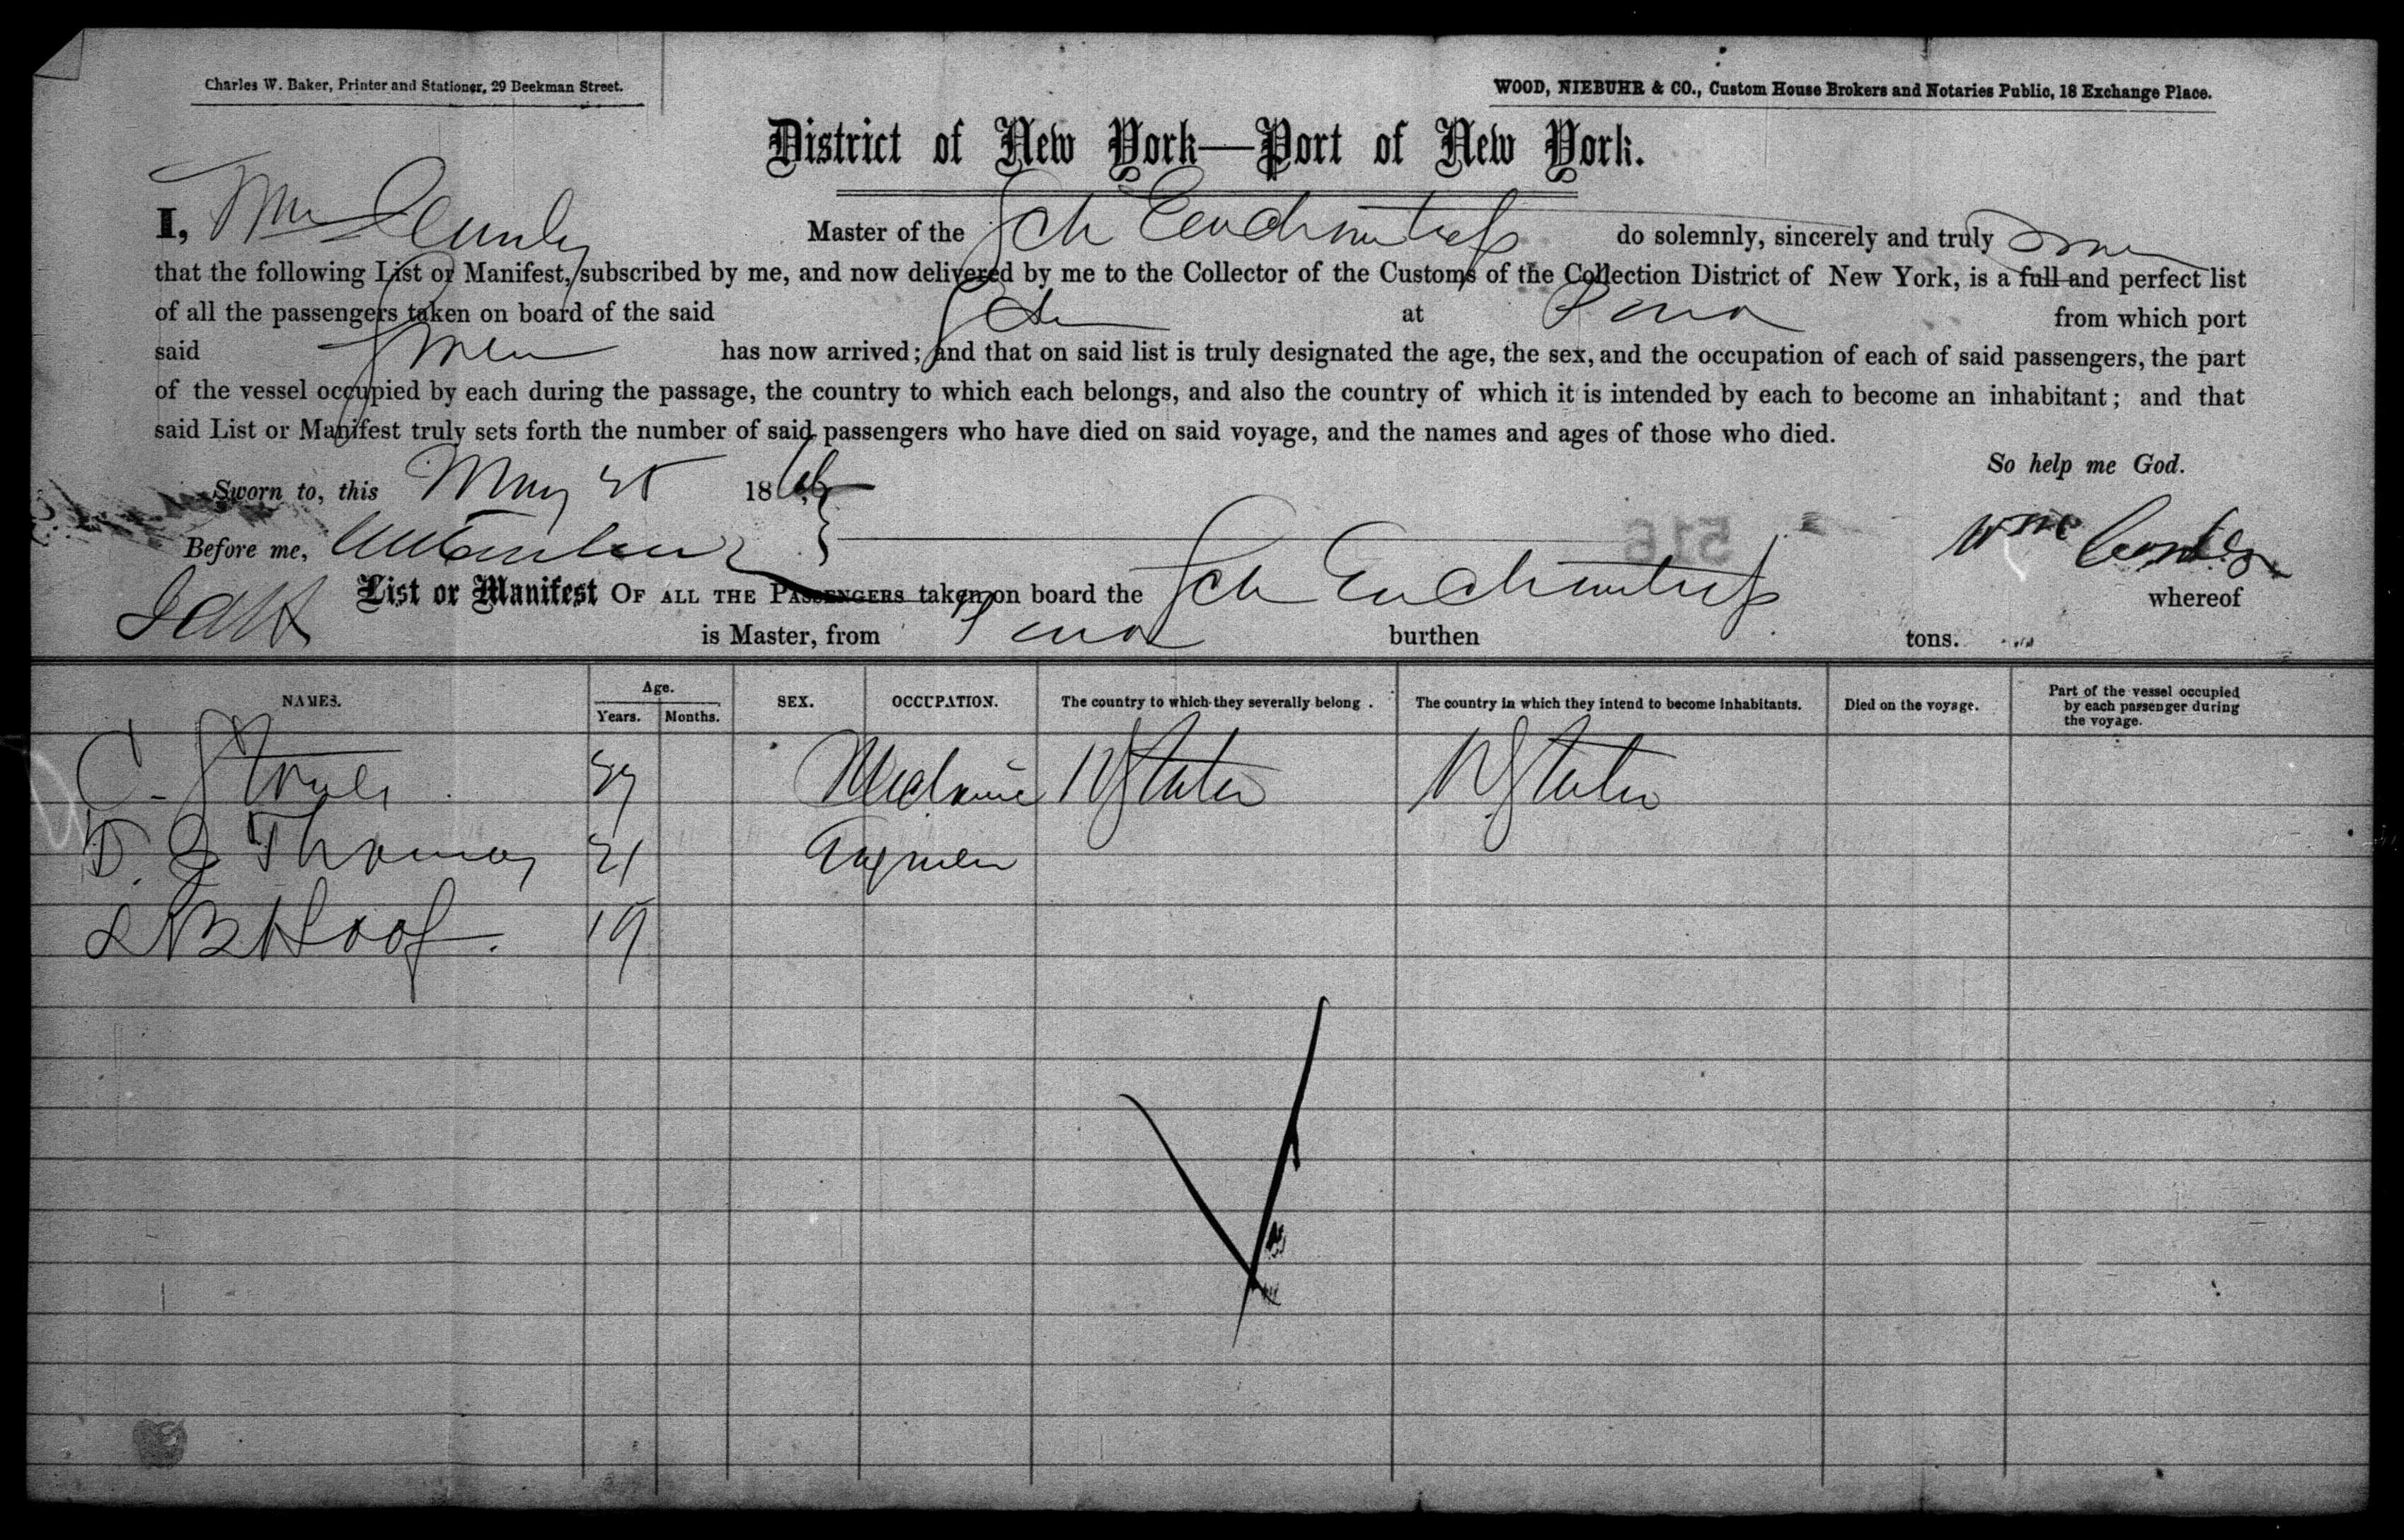 Charles W. Baker, Printer and Stationer, 29 Beekman Street.
WOOD, NIEBUHR & CO., Custom House Brokers and Notaries Public, 18 Exchange Place.
District of New York—Port of New York.
I, Wm Master of the Sch Enchantress do solemnly, sincerely and truly swear
that the following List or Manifest, subscribed by me, and now delivered by me to the Collector of the Customs of the Collection District of New York, is a full and perfect list
of all the passengers taken on board of the said Sch at from which port
said has now arrived; and that on said list is truly designated the age, the sex, and the occupation of each of said passengers, the part
of the vessel occupied by each during the passage, the country to which each belongs, and also the country of which it is intended by each to become an inhabitant; and that
said List or Manifest truly sets forth the number of said passengers who have died on said voyage, and the names and ages of those who died.
So help me God.
Sworn to, this May 25 1866
Before me,
Wm
516
List or Manifest OF ALL THE PASSENGERS taken on board the Sch Enchantress whereof
is Master, from burthen tons.
NAMES. Age. Years. Months. SEX. OCCUPATION. The country to which they severally belong. The country in which they intend to become inhabitants. Died on the voyage. Part of the vessel occupied by each passenger during the voyage.
C. Mechanic U States U States
D. J. Thomas 21
Hoof. 19